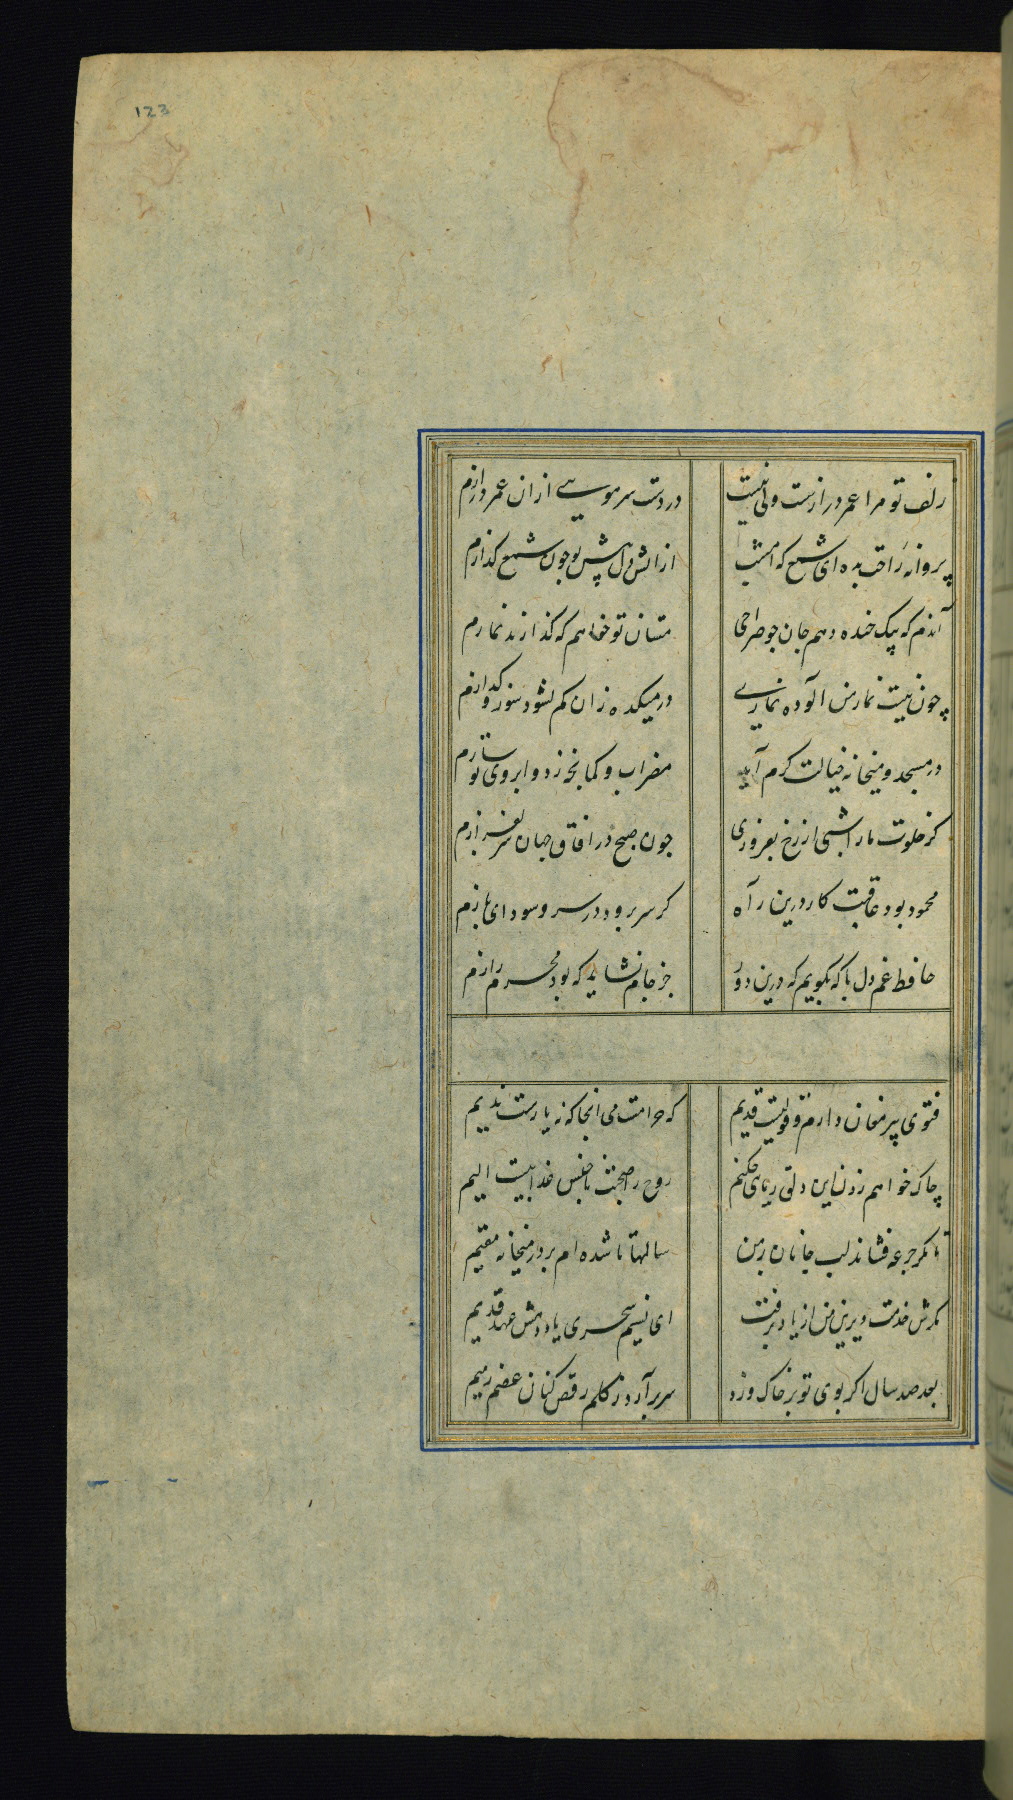 123
زلف تو مرا عمر درازست ولی نیست در دست سر مویی ازان عمر درازم
پروانه راحت بده ای شمع که امشب از اتش دل پیش تو چون شمع کدازم
آندم که بیک خنده دهم جان چو صراحی مستان تو خواهم که کذارند نمازم
چون نیست نماز من الوده نمازی در میکده زان کم نشود سوز و کدازم
در مسجد و میخانه خیالت کرم آید محراب و کمانچه ز دو ابروی تو سازم
کر خلوت ما را شبی از رخ بفروزی چون صبح در افاق جهان سر بفرازم
محمود بود عاقبت کار درین راه کر سر برود در سر وسودای ایازم
حافظ غم دل با که بکویم که درین دور جز جام نشاید که بود محرم رازم
فتوی پیر مغان دارم و قولیست قدیم که حرامست می انجا که نه یارست ندیم
چاک خواهم زدن این دلق ریایی چکنم روح را صحبت ناجنس عذابیست الیم
تا مکر جرعه فشاند لب جانان بر من سالها تا شده ام بر در میخانه مقیم
مکرش خدمت دیرین من از یاد برفت ای نسیم سحری یاد دهش عهد قدیم
بعد صد سال اکر بوی تو بر خاک وزد سر بر آرد ز کلم رقص کنان عضم رمیم